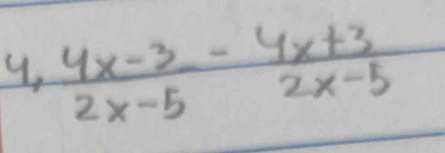 4, 4x-3 / 2x-5 - 4x+3 / 2x-5